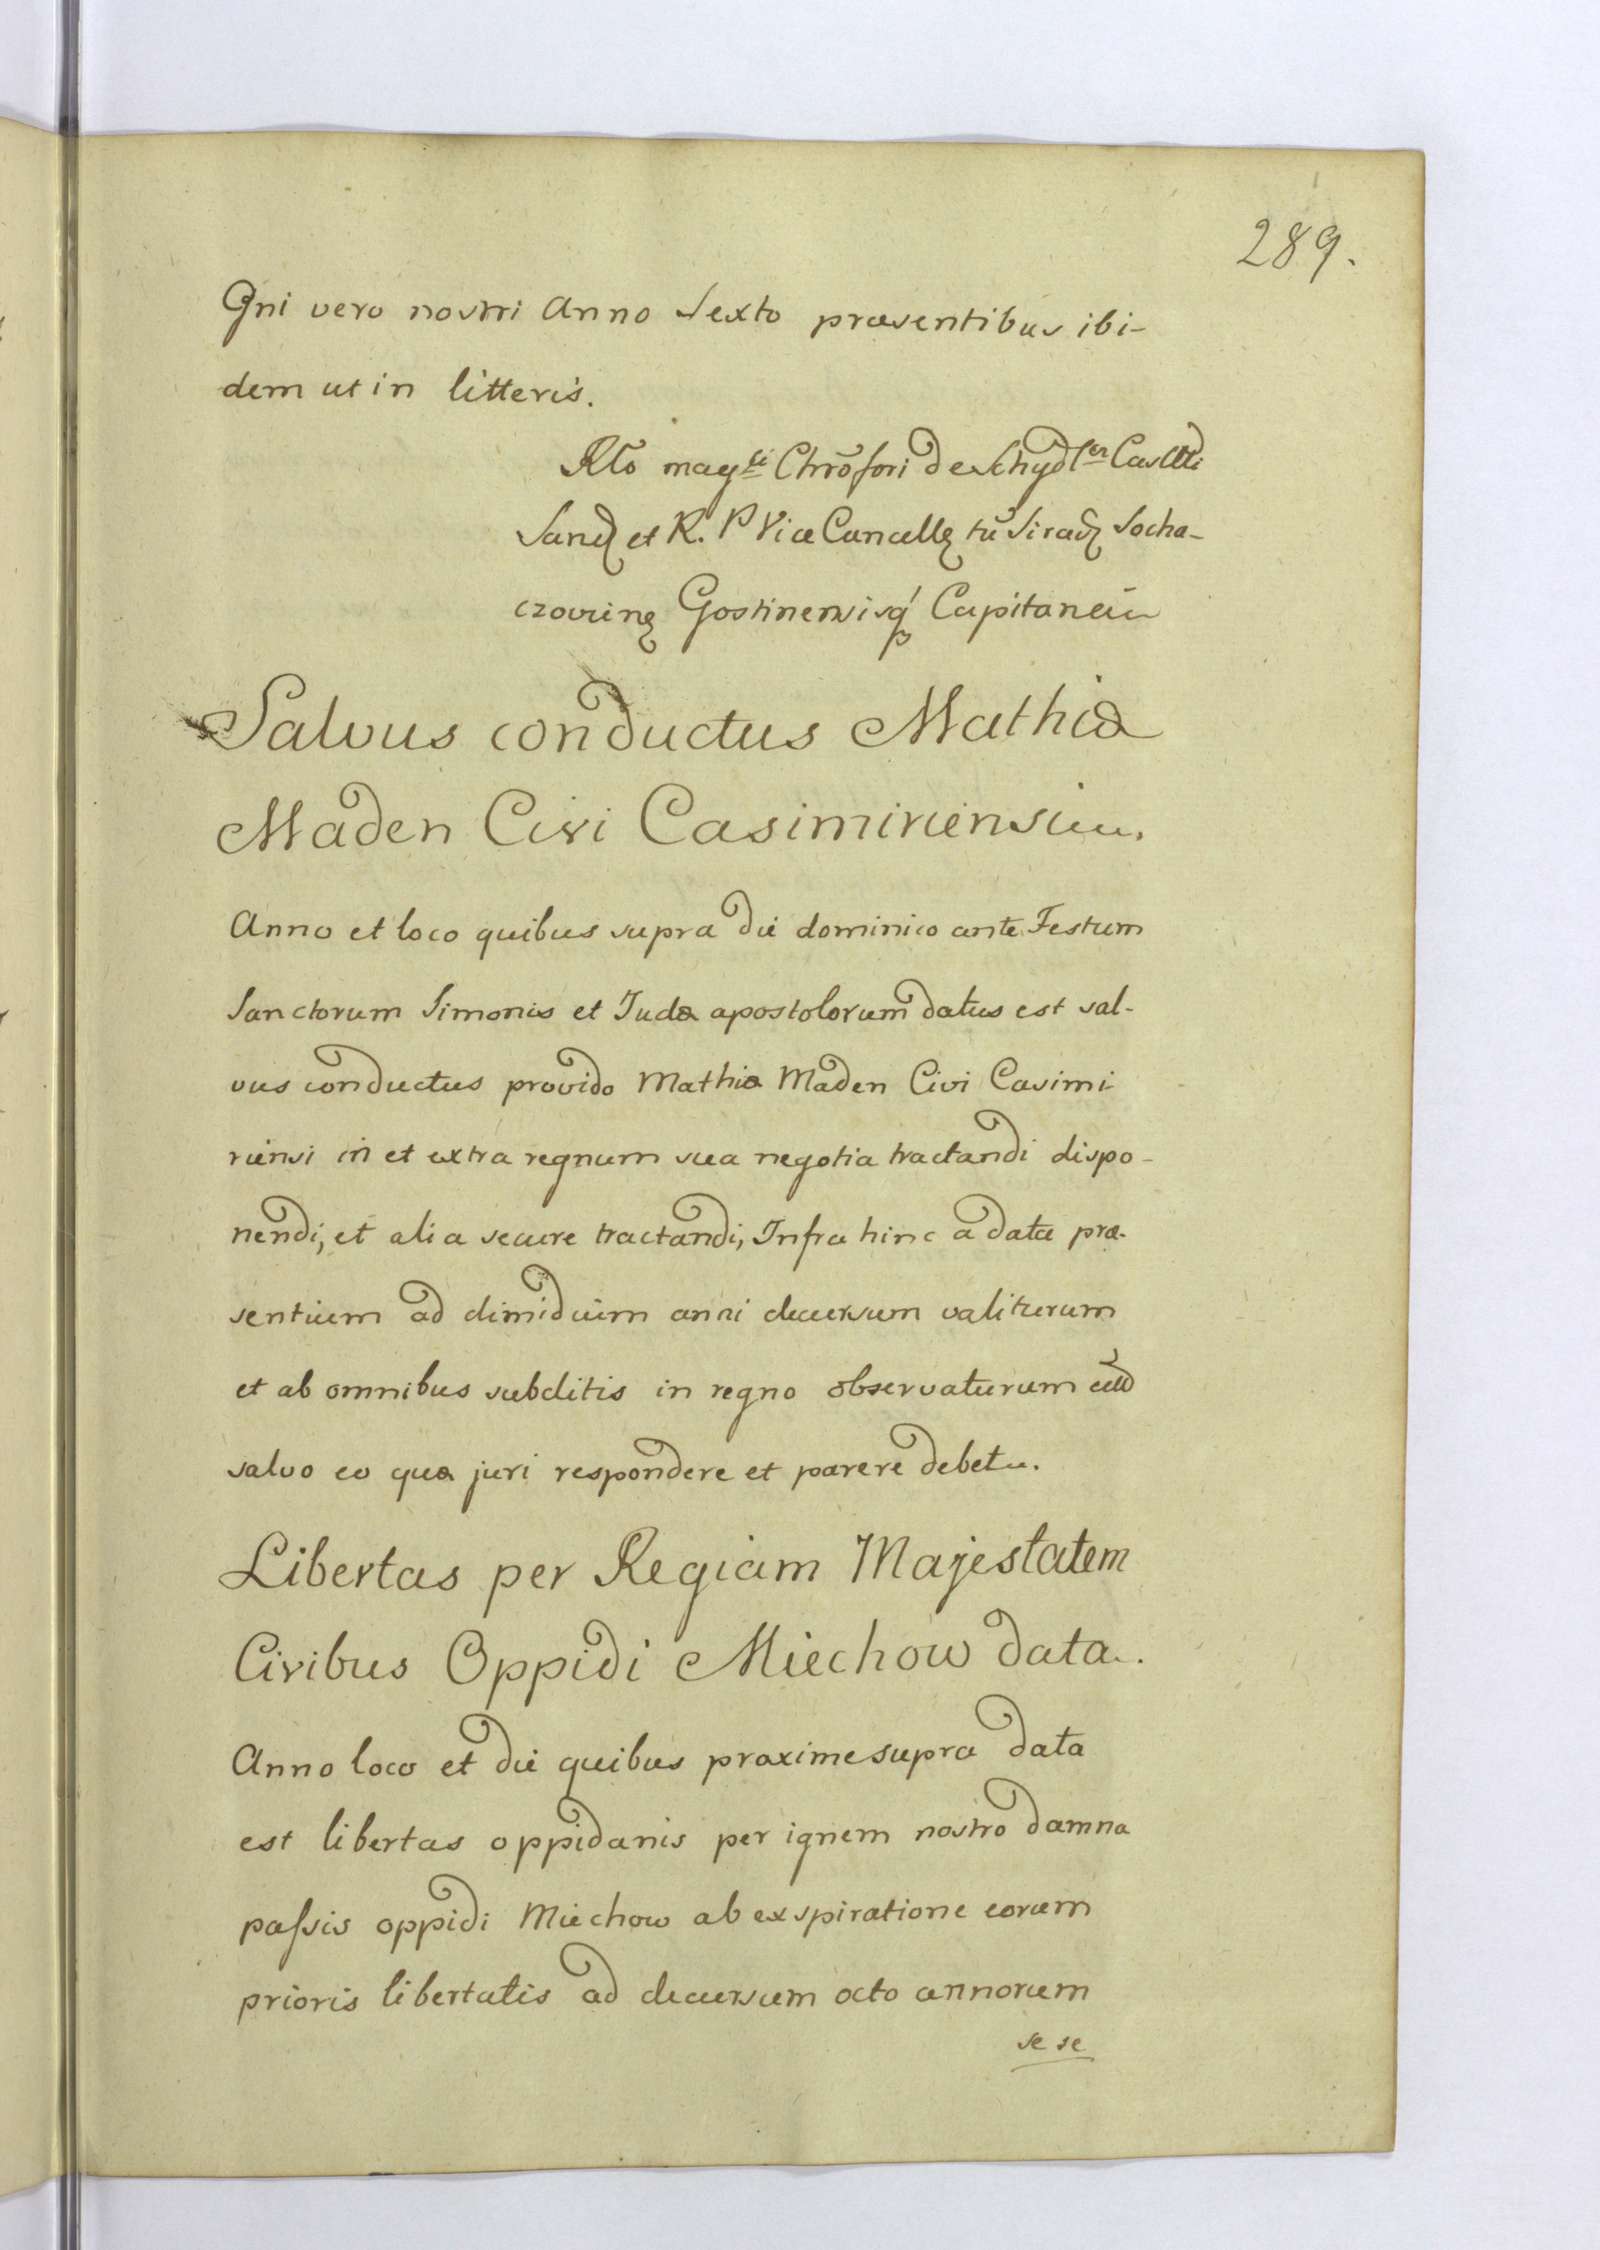 289.
Gni vero nostri Anno Sexto præsentibus ibi-
dem ut in litteris.
Rlo mag^ci Chrofori de Schydl^cz Castlli
Sand et R. P Vice Cancell tū Sirad Socha-
czovien Gostinensisq Capitanei
Salvus conductus Mathiæ
Maden Civi Casimiriensi.
Anno et loco quibus supra die dominico ante Festum
Sanctorum Simonis et Judæ apostolorum datus est sal-
vus conductus provido Mathiæ Maden Civi Casimi
riensi in et extra regnum sua negotia tractandi dispo-
nendi, et alia secure tractandi, Infra hinc a data præ-
sentium ad dimidium anni decursum valiturum
et ab omnibus subditis in regno observaturum
salvo eo quæ juri respondere et parere debet.
Libertas per Regiam Majestatem
Civibus Oppidi Miechow data.
Anno loco et die quibus proxime supra data
est libertas oppidanis per ignem nostro damna
passis oppidi Miechow ab exspiratione eorum
prioris libertatis ad decursum octo annorum
se se